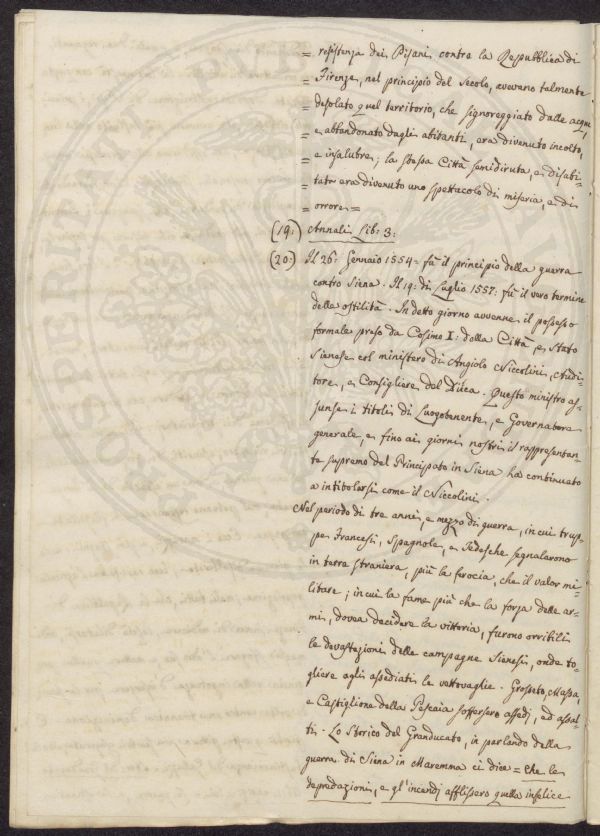 = resistenza dei Pisani contro la Repubblica di
= Firenze, nel principio del Secolo, avevano talmente
= desolato quel territorio, che signoreggiato dalle acque,
= e abbandonato dagli abitanti, era divenuto incolto,
= e insalubre; la stessa Città semidiruta, e disabi-
= tata era divenuto uno spettacolo di miseria, e di
= orrore =
(19:) Annali Lib: 3:
(20:) Il 26: Gennaio 1554 = fù il principio della guerra
contro Siena. Il 19: di Luglio 1557: fù il vero termine
delle ostilità. In detto giorno avvenne il possesso
formale preso da Cosimo I: della Città, e Stato
Sianese col ministero di Angiolo Niccolini, Audi-
tore, e Consigliere del Duca. Questo ministro as-
sunse i titoli di Luogotenente, e Governatore
generale, e fino ai giorni nostri il rappresentan-
te supremo del Principato in Siena ha continuato
a intitolarsi come il Niccolini.
Nel periodo di tre anni, e mezzo di guerra, in cui trup-
pe Francesi, Spagnole, e Tedesche segnalarono
in terra straniera, più la ferocia, che il valor mi-
litare; in cui la fame più che la forza delle ar-
mi, dovea decidere la vittoria, furono orribili
le devastazioni delle campagne Sienesi, onde to-
gliere agli assediati le vettovaglie. Grosseto, Massa,
e Castiglione della Pescaia soffersero assedj, ed assal-
ti. Lo Storico del Granducato, in parlando della
guerra di Siena in Maremma ci dice = che le
depredazioni, e gl'incendj afflissero quella infelice
PROSPERITATI PUB